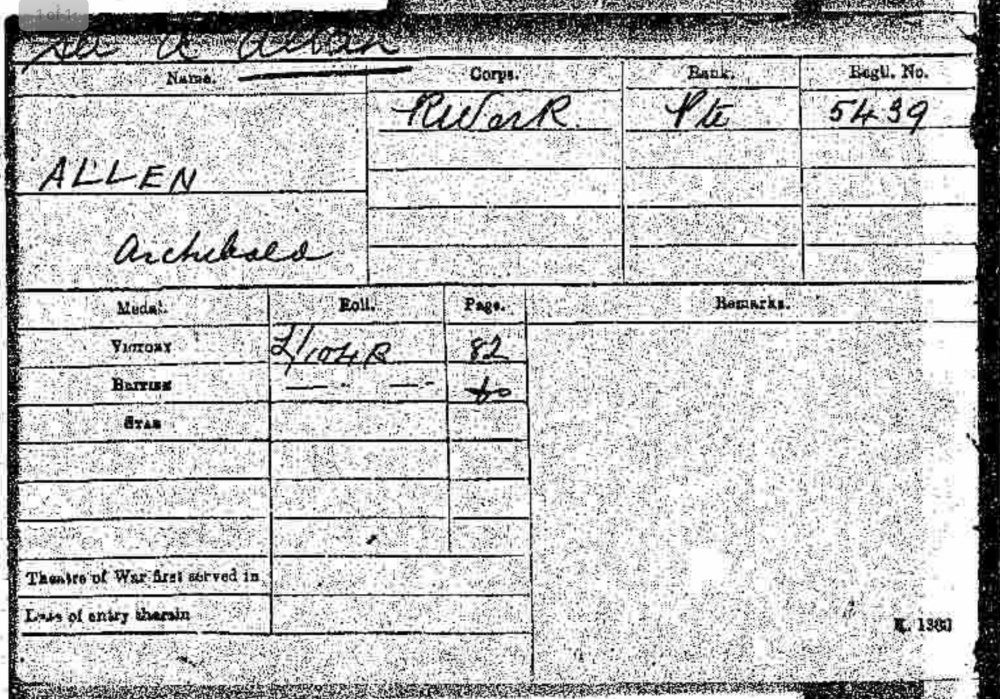 1 of 1
See A Allan
Name. Corps. Rank. Regtl. No.
RWarR. Pte 5439
ALLEN
Archibald
Medal. Roll. Page. Remarks.
VICTORY 82
BRITISH — " — " do
STAR
Theatre of War first served in
Date of entry therein
K. 1380